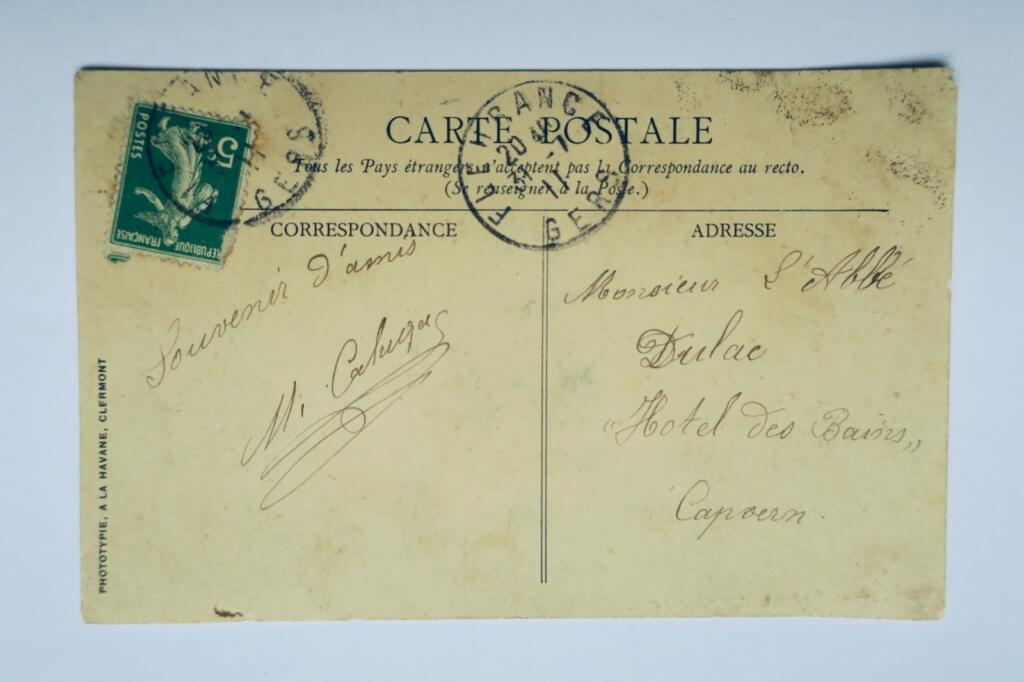 CARTE POSTALE
Tous les Pays étrangers n'acceptent pas la Correspondance au recto.
(Se renseigner à la Poste.)
CORRESPONDANCE
ADRESSE
5c
POSTES
REPUBLIQUE FRANÇAISE
GERS
FLEURANCE
20
31 -1
11
GERS
Souvenir d'amis
M.
Monsieur L'Abbé
Dulac
"Hotel des Bains„
Capvern.
PHOTOTYPIE, A LA HAVANE, CLERMONT